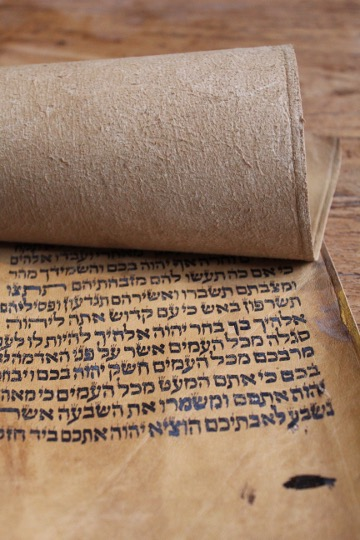 ועבדו אלהים
אף יהוה בכם והשמידך מהר
כי אם כה תעשו להם מזבחתיהם תתצו
ומצבתם תשברו ואשירהם תגדעון ופסיליהם
תשרפון באש כי עם קדוש אתה ליהוה
אלהיך בך בחר יהוה אלהיך להיות לו
סגלה מכל העמים אשר על פני האדמה
מרבכם מכל העמים חשק יהוה בכם
בכם כי אתם המעט מכל העמים כי
יהוה אתכם ומשמרו את השבעה אשר
נשבע לאבתיכם הוציא יהוה אתכם ביד